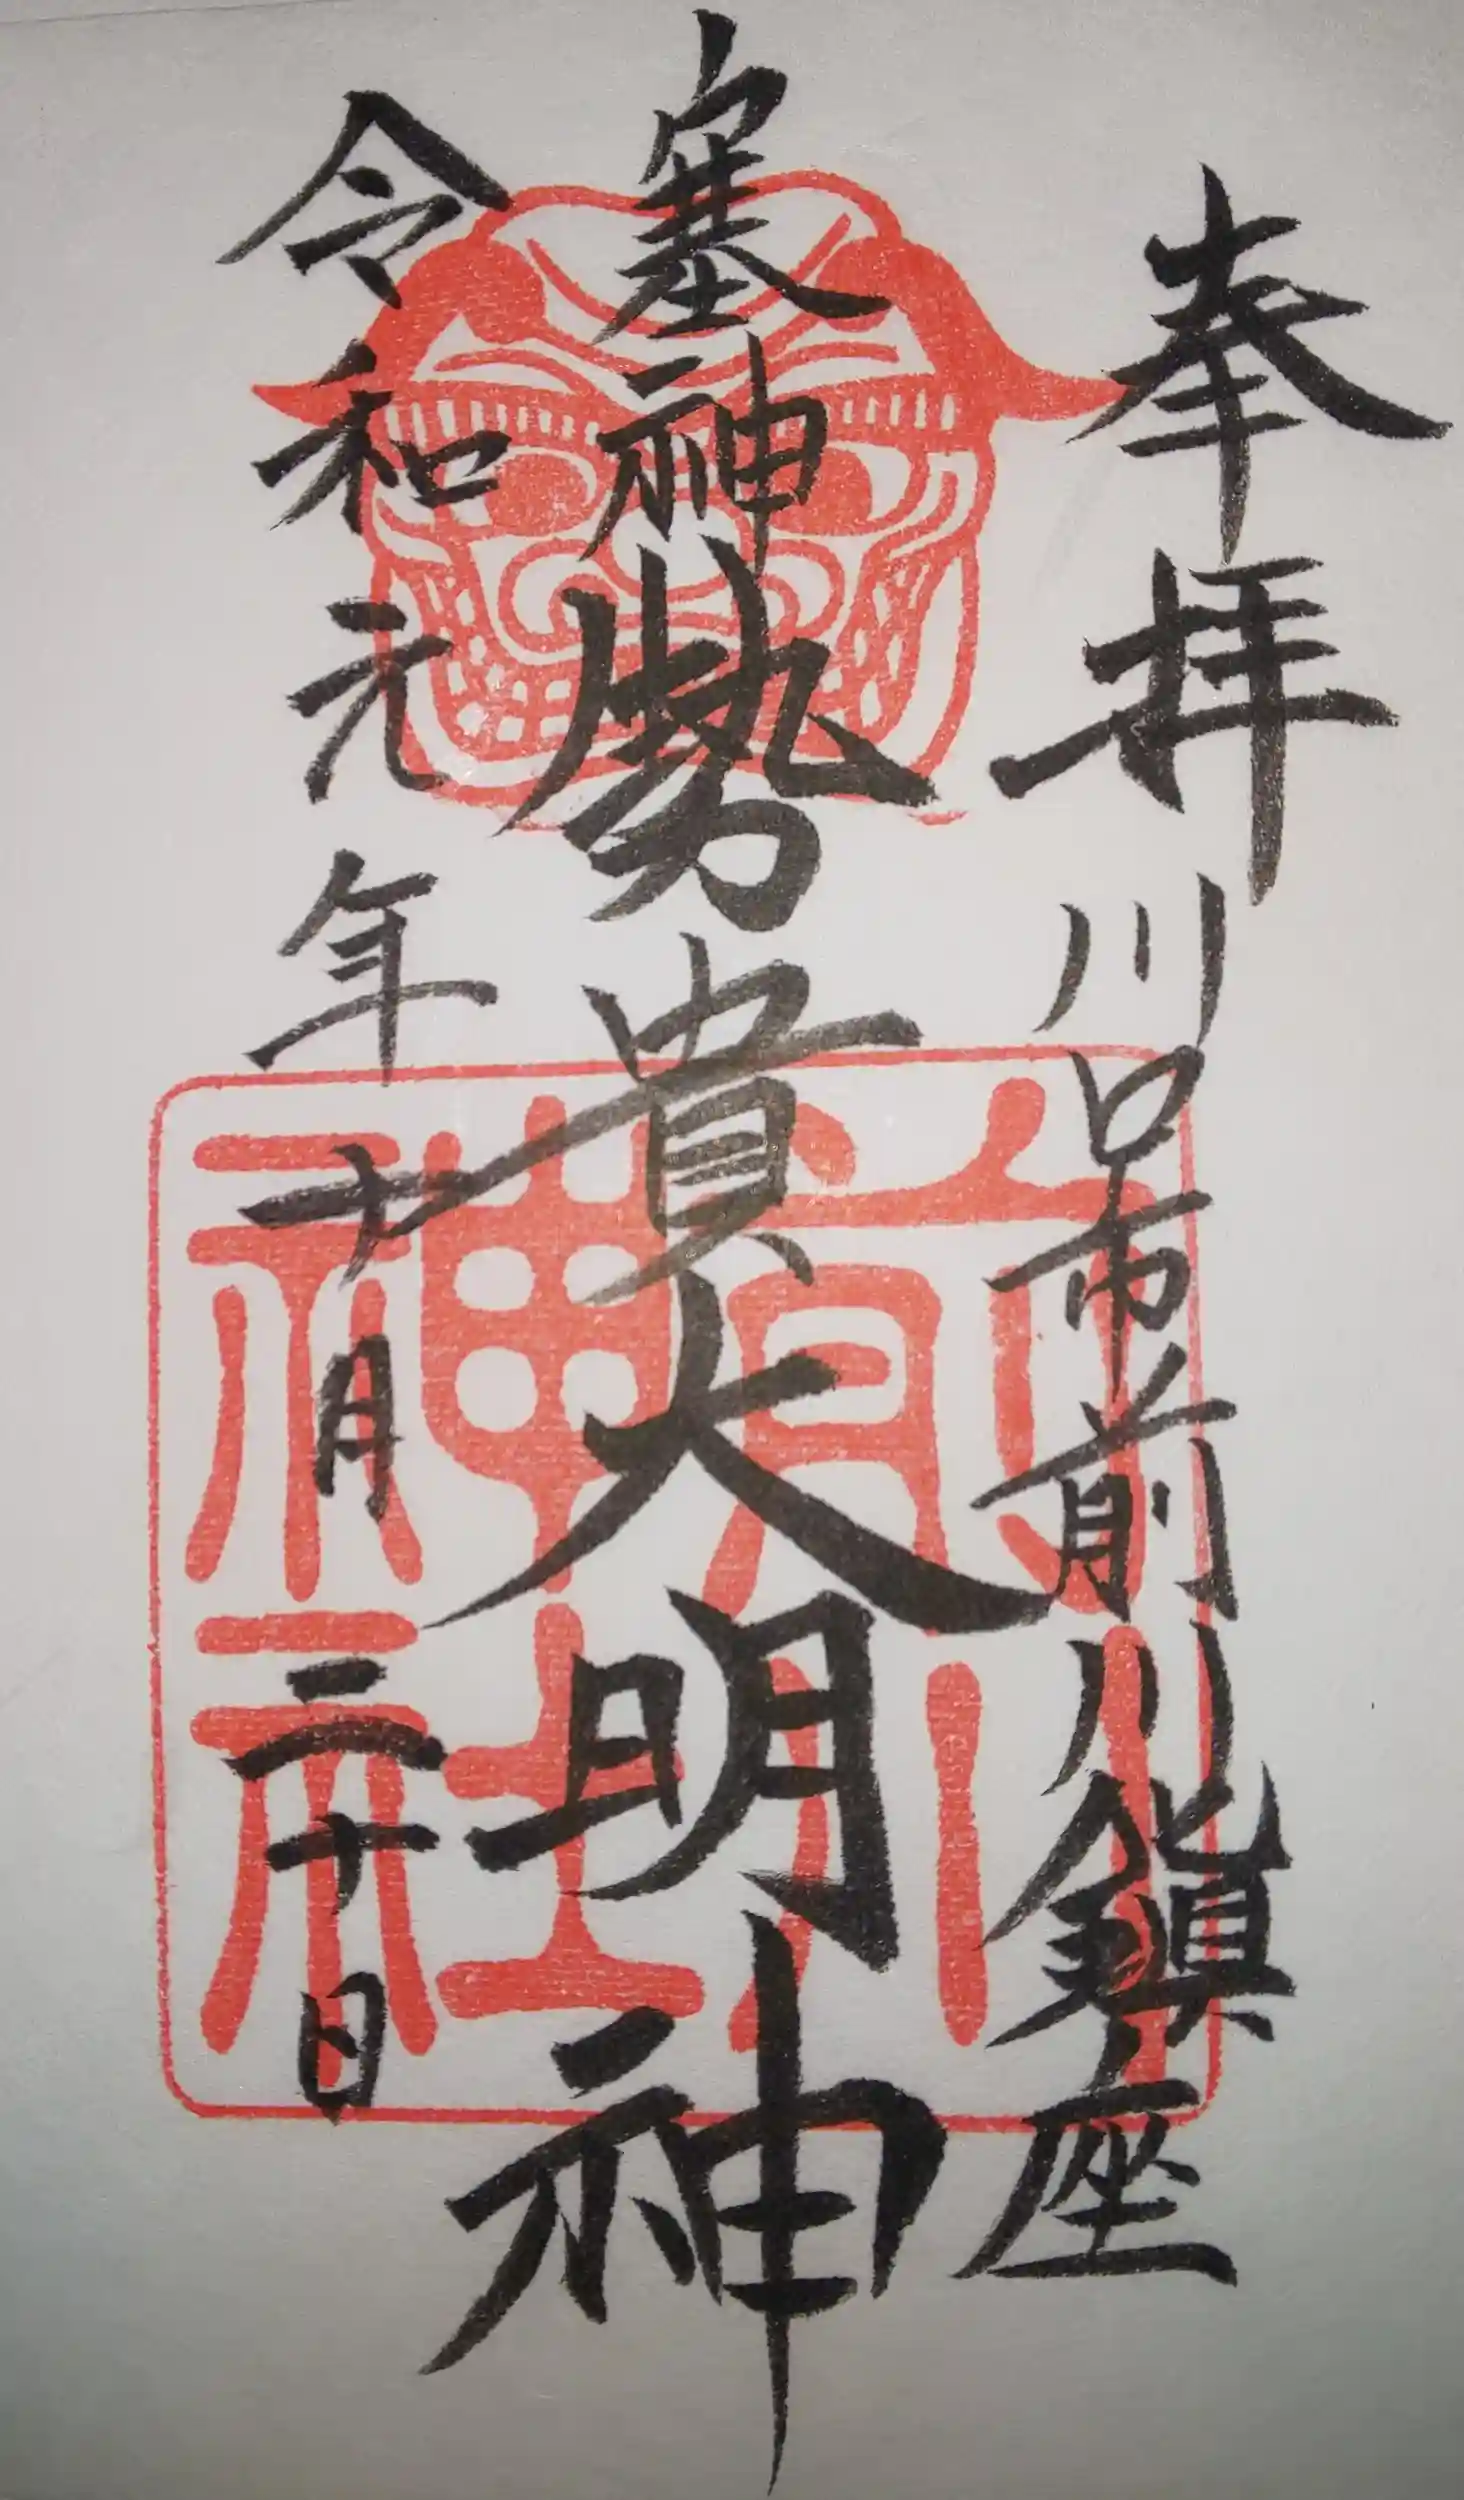 奉拝
川口市前川鎮座
塞神
勢貴大明神
令和元年十月三十日
前川神社